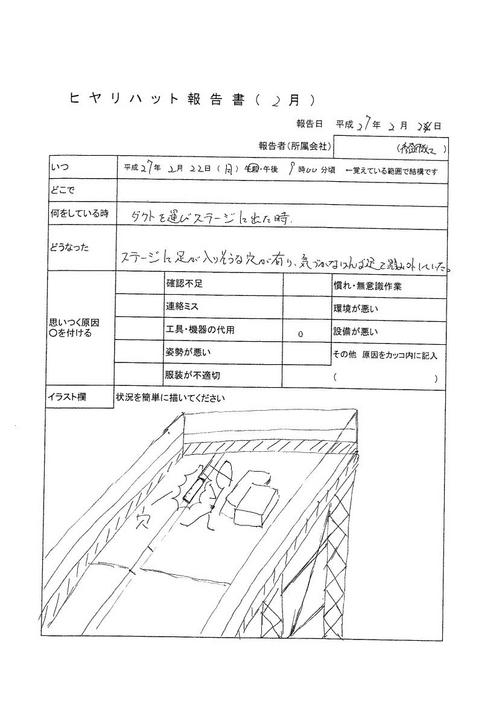 ヒヤリハット報告書(2月)
報告日 平成27年2月24日
報告者(所属会社)
いつ 平成27年2月22日(月)午前・午後 9時00分頃 ←覚えている範囲で結構です
どこで
何をしている時 ダクトを運びステージに出た時.
どうなった ステージに足が入りそうな穴が有り、気づかなければ足で踏み外していた。
確認不足 慣れ・無意識作業
連絡ミス 環境が悪い
思いつく原因
○を付ける
工具・機器の代用 ○ 設備が悪い
姿勢が悪い その他 原因をカッコ内に記入
服装が不適切 ( )
イラスト欄 状況を簡単に描いてください
穴